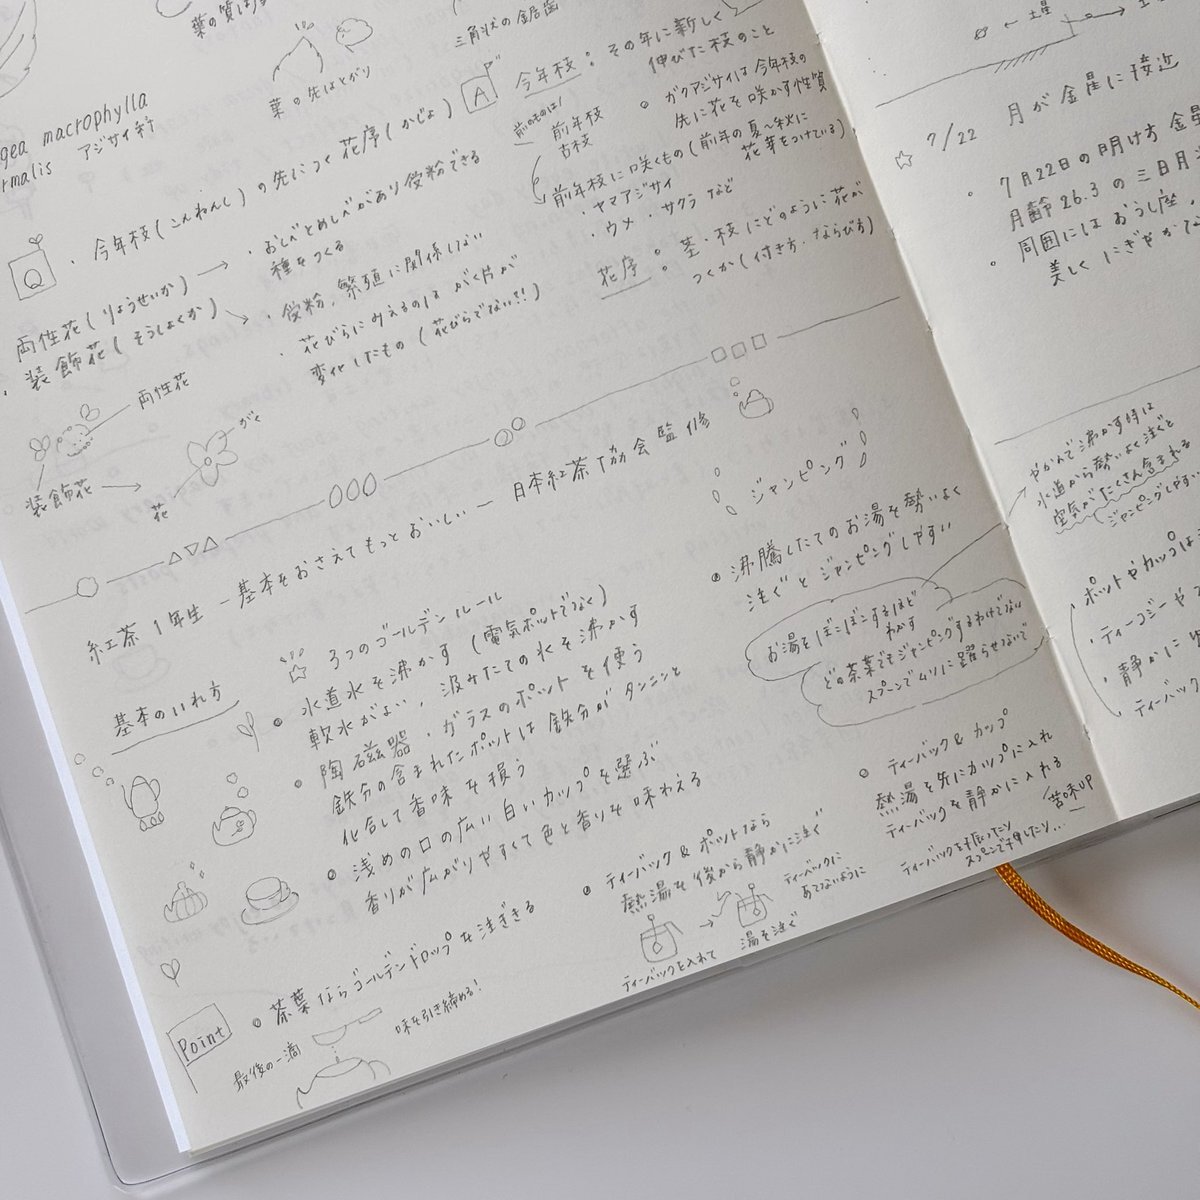 葉の先はとがり
三角状の鋸歯
macrophylla
アジサイ科
Q
・今年枝(こんねんし)の先につく花序(かじょ)
両性花(りょうせいか)→・おしべとめしべがあり受粉できる
種をつくる
・装飾花(そうしょくか)
・受粉、繁殖に関係しない
・花びらにみえるのはがく片が
変化したもの(花びらでない!!)
両性花
装飾花
→花
がく
A
今年枝:その年に新しく
伸びた枝のこと
前のものは!
前年枝
古枝
○ ガクアジサイは今年枝の
先に花を咲かす性質
前年枝に咲くもの(前年の夏〜秋に
花芽をつけている)
・ヤマアジサイ
・ウメ・サクラなど
花序:茎・枝にどのように花が
つくか(付き方・ならび方)
紅茶1年生 ー基本をおさえてもっとおいしいー 日本紅茶協会監修
基本のいれ方
☆3つのゴールデンルール
◎水道水を沸かす(電気ポットでなく)
軟水がよい、汲みたての水を沸かす
◎陶磁器・ガラスのポットを使う
鉄分の含まれたポットは鉄分がタンニンと
化合して香味を損う
◎浅めの口の広い白いカップを選ぶ
香りが広がりやすくて色と香りを味わえる
Point
◎茶葉ならゴールデンドロップを注ぎきる
最後の一滴
味を引き締める!
ジャンピング
◎沸騰したてのお湯を勢いよく
注ぐとジャンピングしやすい
お湯をぼこぼこするほど
わかす
どの茶葉でもジャンピングするわけでない
スプーンでムリに躍らせないで
◎ティーバック&ポットなら
熱湯を後から静かに注ぐ
ティーバックを入れて
→
湯を注ぐ
ティーバックに
あてないように
◎ティーバック&カップ
熱湯を先にカップに入れ
ティーバックを静かに入れる
ティーバックを振ったり
スプーンで押したり…
苦味UP
←土星
☆ 7/22 月が金星に接近
◦7月22日の明け方
月齢26.3の三日月
◦周囲にはおうし座、
美しくにぎやかな
やかんで沸かす時は
水道から勢いよく注ぐと
空気がたくさん含まれる
ジャンピングしやすい
ポットやカップは
・ティーコジーや
・静かに
・ティーバック